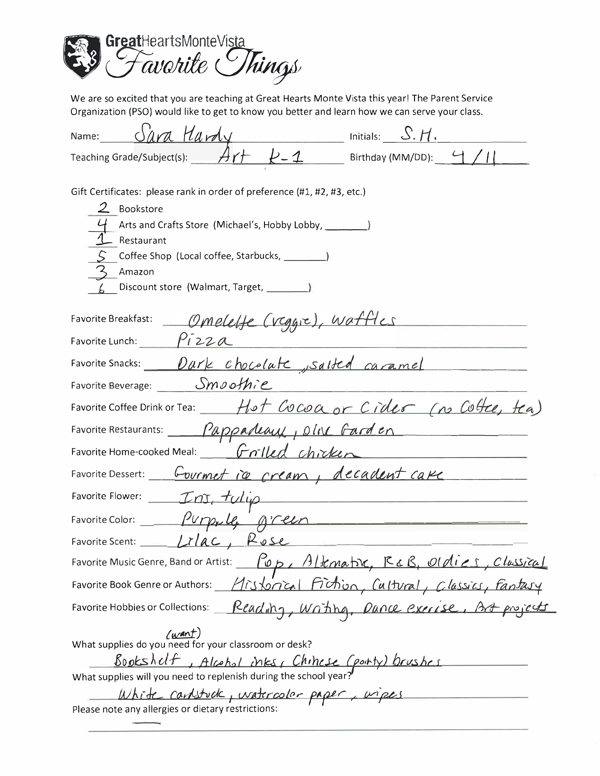 GreatHeartsMonteVista
Favorite Things
We are so excited that you are teaching at Great Hearts Monte Vista this year! The Parent Service
Organization (PSO) would like to get to know you better and learn how we can serve your class.
Name: Sara Hardy Initials: S.H.
Teaching Grade/Subject(s): Art K-1 Birthday (MM/DD): 4/11
Gift Certificates: please rank in order of preference (#1, #2, #3, etc.)
2 Bookstore
4 Arts and Crafts Store (Michael's, Hobby Lobby, ________)
1 Restaurant
5 Coffee Shop (Local coffee, Starbucks, ________)
3 Amazon
6 Discount store (Walmart, Target, ________)
Favorite Breakfast: Omelette (veggie), waffles
Favorite Lunch: Pizza
Favorite Snacks: Dark chocolate, salted caramel
Favorite Beverage: Smoothie
Favorite Coffee Drink or Tea: Hot Cocoa or Cider (no Coffee, tea)
Favorite Restaurants: Pappadeaux, Olive Garden
Favorite Home-cooked Meal: Grilled chicken
Favorite Dessert: Gourmet ice cream, decadent cake
Favorite Flower: Iris, tulip
Favorite Color: Purple, green
Favorite Scent: Lilac, Rose
Favorite Music Genre, Band or Artist: Pop, Alternative, R&B, Oldies, Classical
Favorite Book Genre or Authors: Historical Fiction, Cultural, Classics, Fantasy
Favorite Hobbies or Collections: Reading, Writing, Dance exercise, Art projects
(want)
What supplies do you need for your classroom or desk?
Bookshelf, Alcohol inks, Chinese (pointy) brushes
What supplies will you need to replenish during the school year?
White cardstock, watercolor paper, wipes
Please note any allergies or dietary restrictions:
—